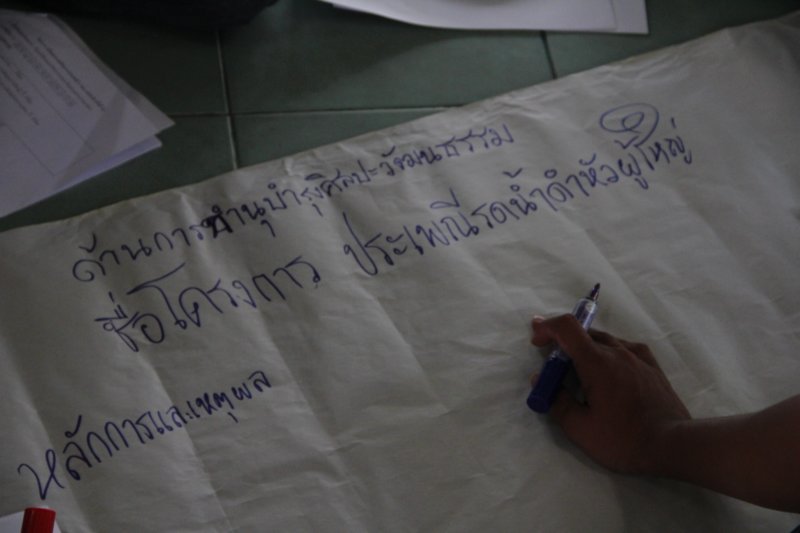 ด้านการทำนุบำรุงศิลปะวัฒนธรรม
ชื่อโครงการ ประเพณีรดน้ำดำหัวผู้ใหญ่
หลักการและเหตุผล